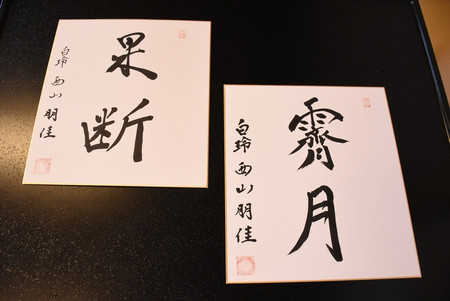 果断
白玲 西山朋佳
霽月
白玲 西山朋佳